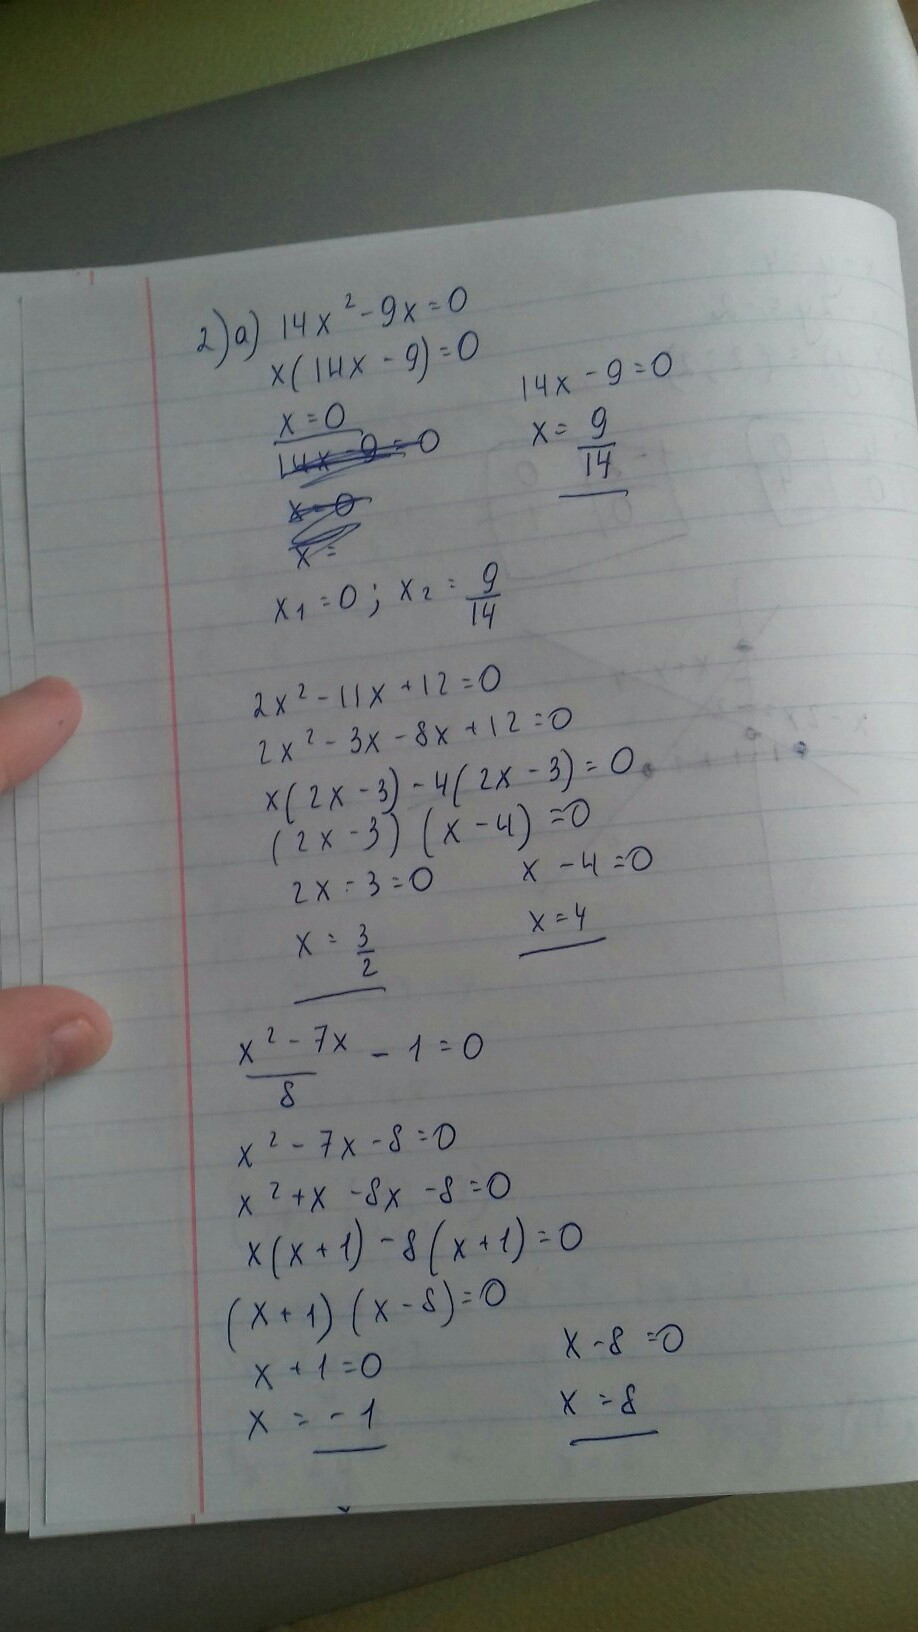 2) a) 14x² - 9x = 0
x(14x - 9) = 0
x = 0
14x - 9 = 0
14x - 9 = 0
x = 9/14
x = 0
x =
x₁ = 0 ; x₂ = 9/14
2x² - 11x + 12 = 0
2x² - 3x - 8x + 12 = 0
x(2x - 3) - 4(2x - 3) = 0
(2x - 3) (x - 4) = 0
2x - 3 = 0 x - 4 = 0
x = 3/2 x = 4
(x² - 7x)/8 - 1 = 0
x² - 7x - 8 = 0
x² + x - 8x - 8 = 0
x(x + 1) - 8(x + 1) = 0
(x + 1) (x - 8) = 0
x + 1 = 0 x - 8 = 0
x = -1 x = 8